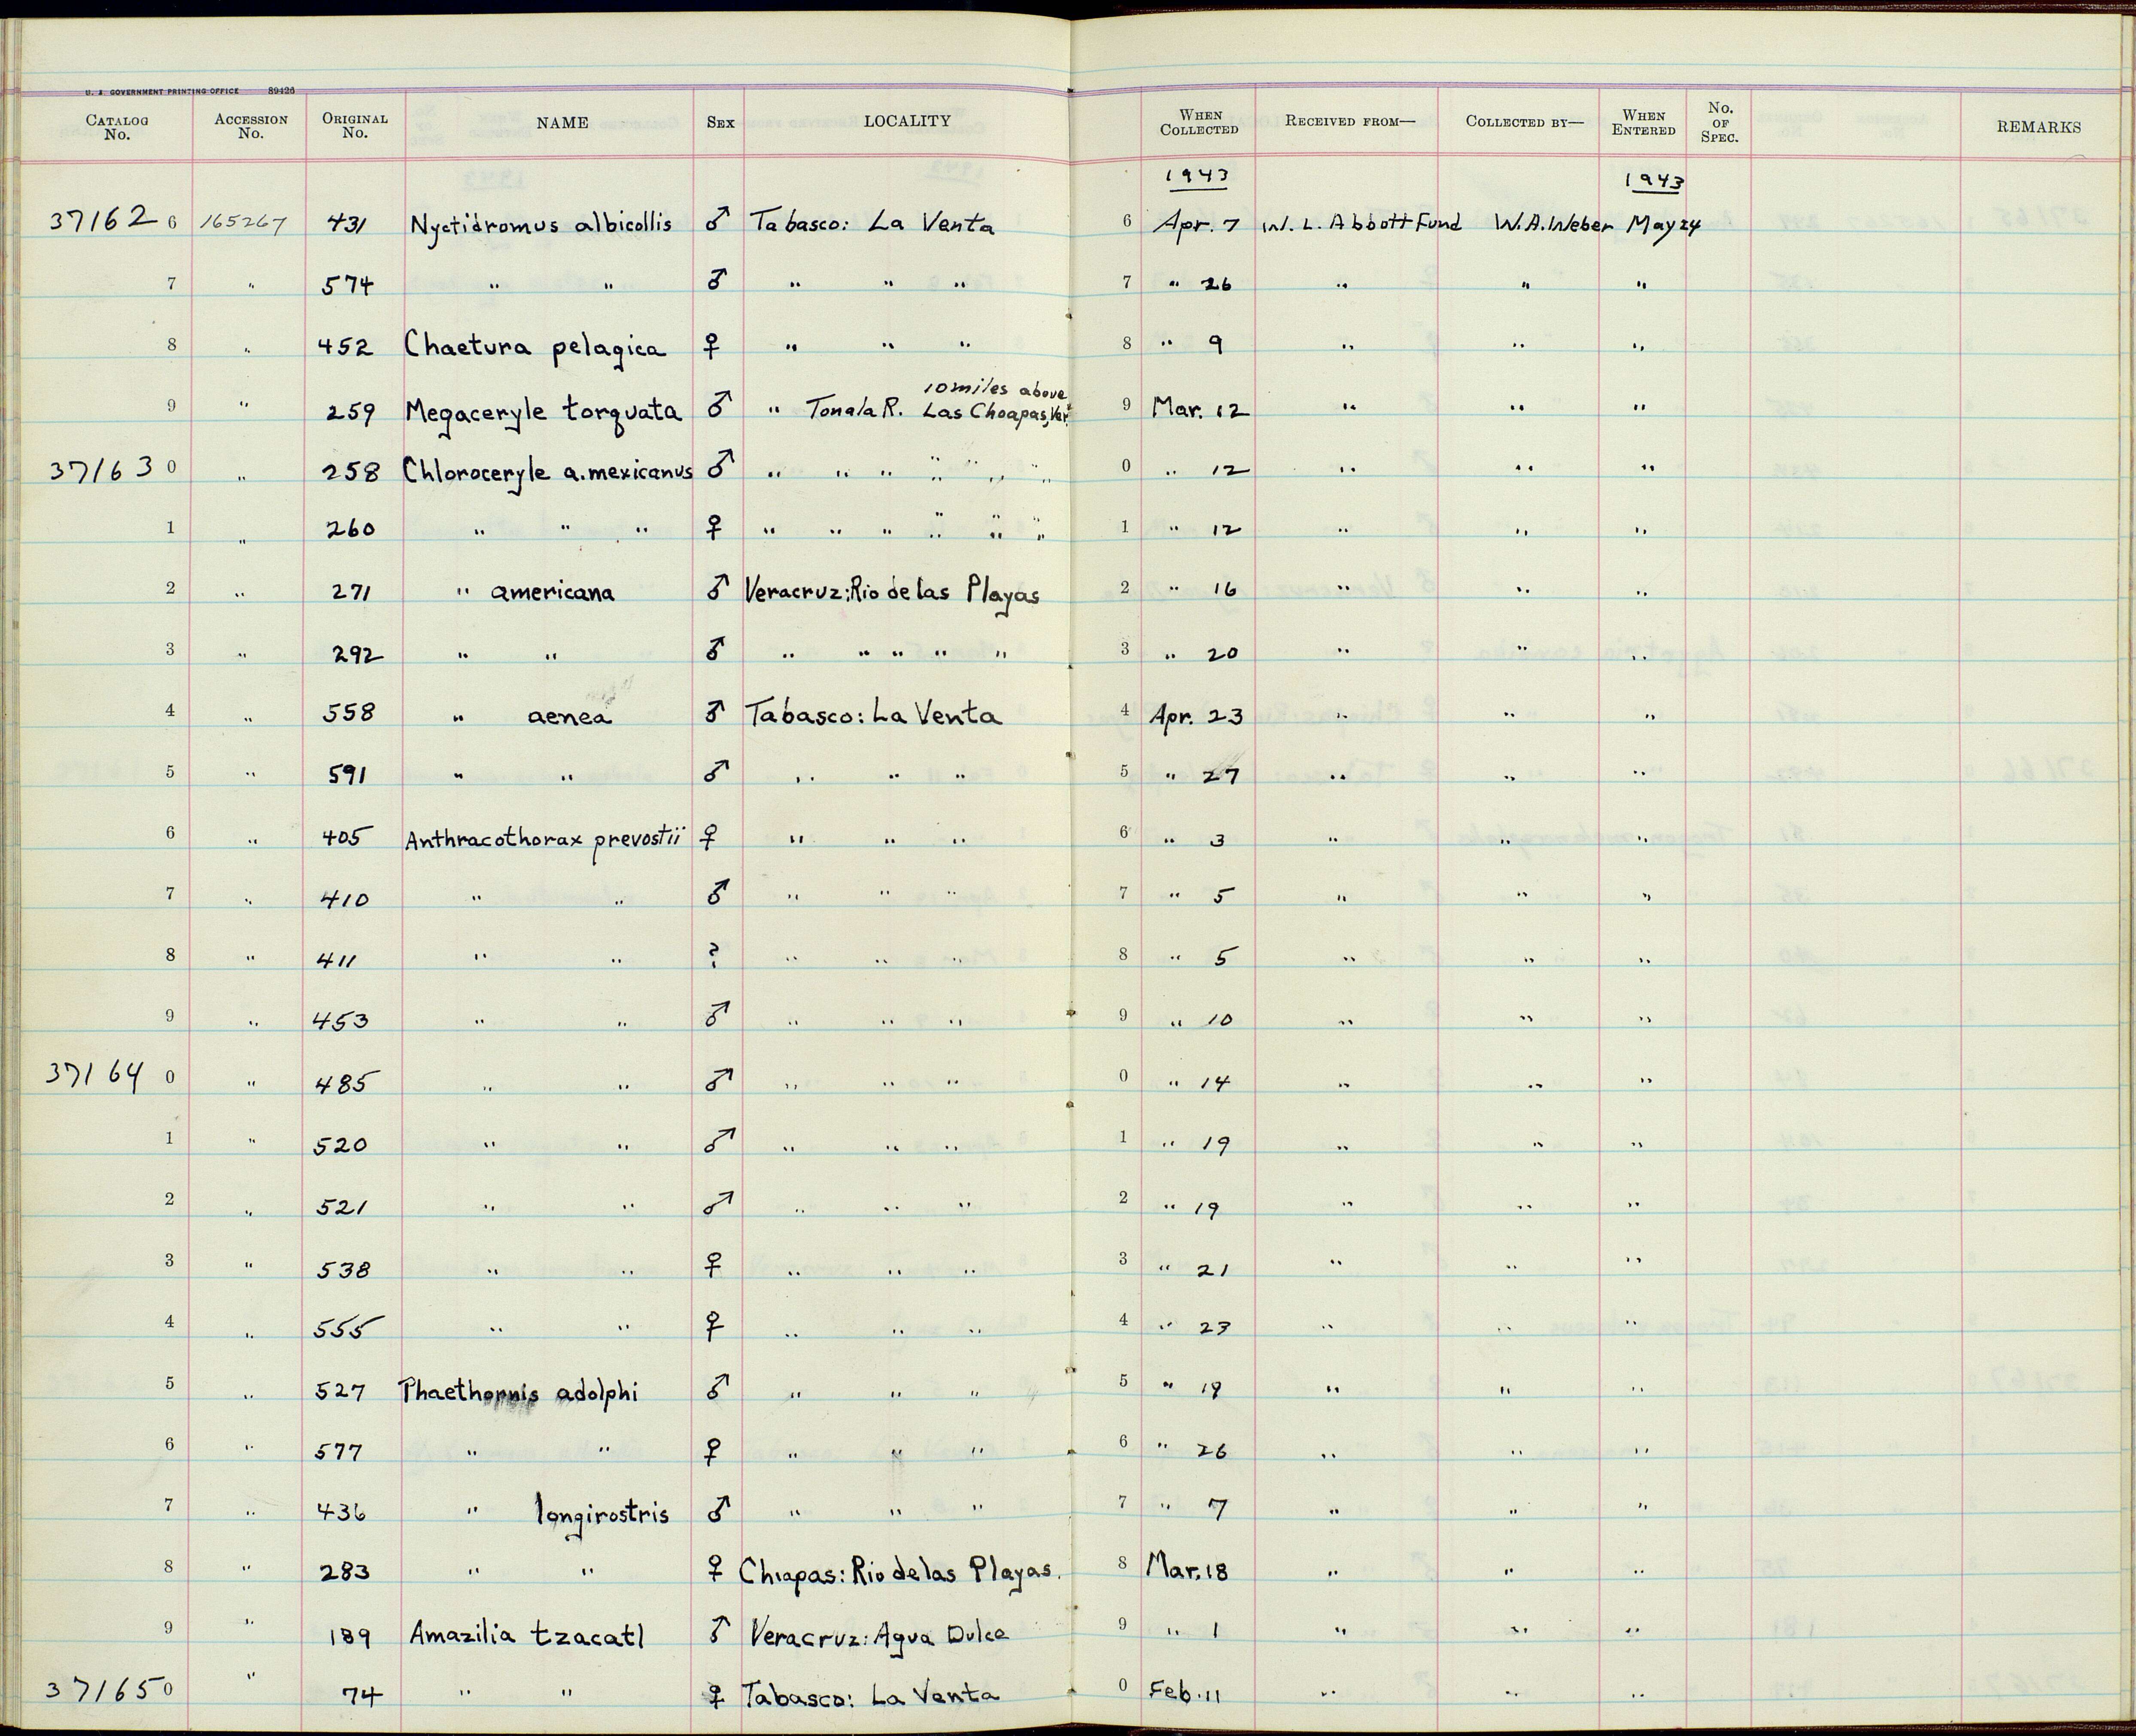 U. S. GOVERNMENT PRINTING OFFICE 89426
CATALOG No. ACCESSION No. ORIGINAL No. NAME SEX LOCALITY WHEN COLLECTED RECEIVED FROM— COLLECTED BY— WHEN ENTERED No. OF SPEC. REMARKS
1943 1943
37162 6 165267 431 Nyctidromus albicollis ♂ Tabasco: La Venta 6 Apr. 7 W. L. Abbott Fund W.A. Weber May 24
7 " 574 " " ♂ " " " 7 " 26 " " "
8 " 452 Chaetura pelagica ♀ " " " 8 " 9 " " "
10 miles above
9 " 259 Megaceryle torquata ♂ " Tonala R. Las Choapas, Ver. 9 Mar. 12 " " "
37163 0 " 258 Chloroceryle a. mexicanus ♂ " " " " " " 0 " 12 " " "
1 " 260 " " " ♀ " " " " " " 1 " 12 " " "
2 " 271 " americana ♂ Veracruz: Rio de las Playas 2 " 16 " " "
3 " 292 " " ♂ " " " " " 3 " 20 " " "
4 " 558 " aenea ♂ Tabasco: La Venta 4 Apr. 23 " " "
5 " 591 " " ♂ " " " 5 " 27 " " "
6 " 405 Anthracothorax prevostii ♀ " " " 6 " 3 " " "
7 " 410 " " ♂ " " " 7 " 5 " " "
8 " 411 " " ? " " " 8 " 5 " " "
9 " 453 " " ♂ " " " 9 " 10 " " "
37164 0 " 485 " " ♂ " " " 0 " 14 " " "
1 " 520 " " ♂ " " " 1 " 19 " " "
2 " 521 " " ♂ " " " 2 " 19 " " "
3 " 538 " " ♀ " " " 3 " 21 " " "
4 " 555 " " ♀ " " " 4 " 23 " " "
5 " 527 Phaethornis adolphi ♂ " " " 5 " 19 " " "
6 " 577 " " ♀ " " " 6 " 26 " " "
7 " 436 " longirostris ♂ " " " 7 " 7 " " "
8 " 283 " " ♀ Chiapas: Rio de las Playas. 8 Mar. 18 " " "
9 " 189 Amazilia tzacatl ♂ Veracruz: Agua Dulce 9 " 1 " " "
37165 0 " 74 " " ♀ Tabasco: La Venta 0 Feb. 11 " " "